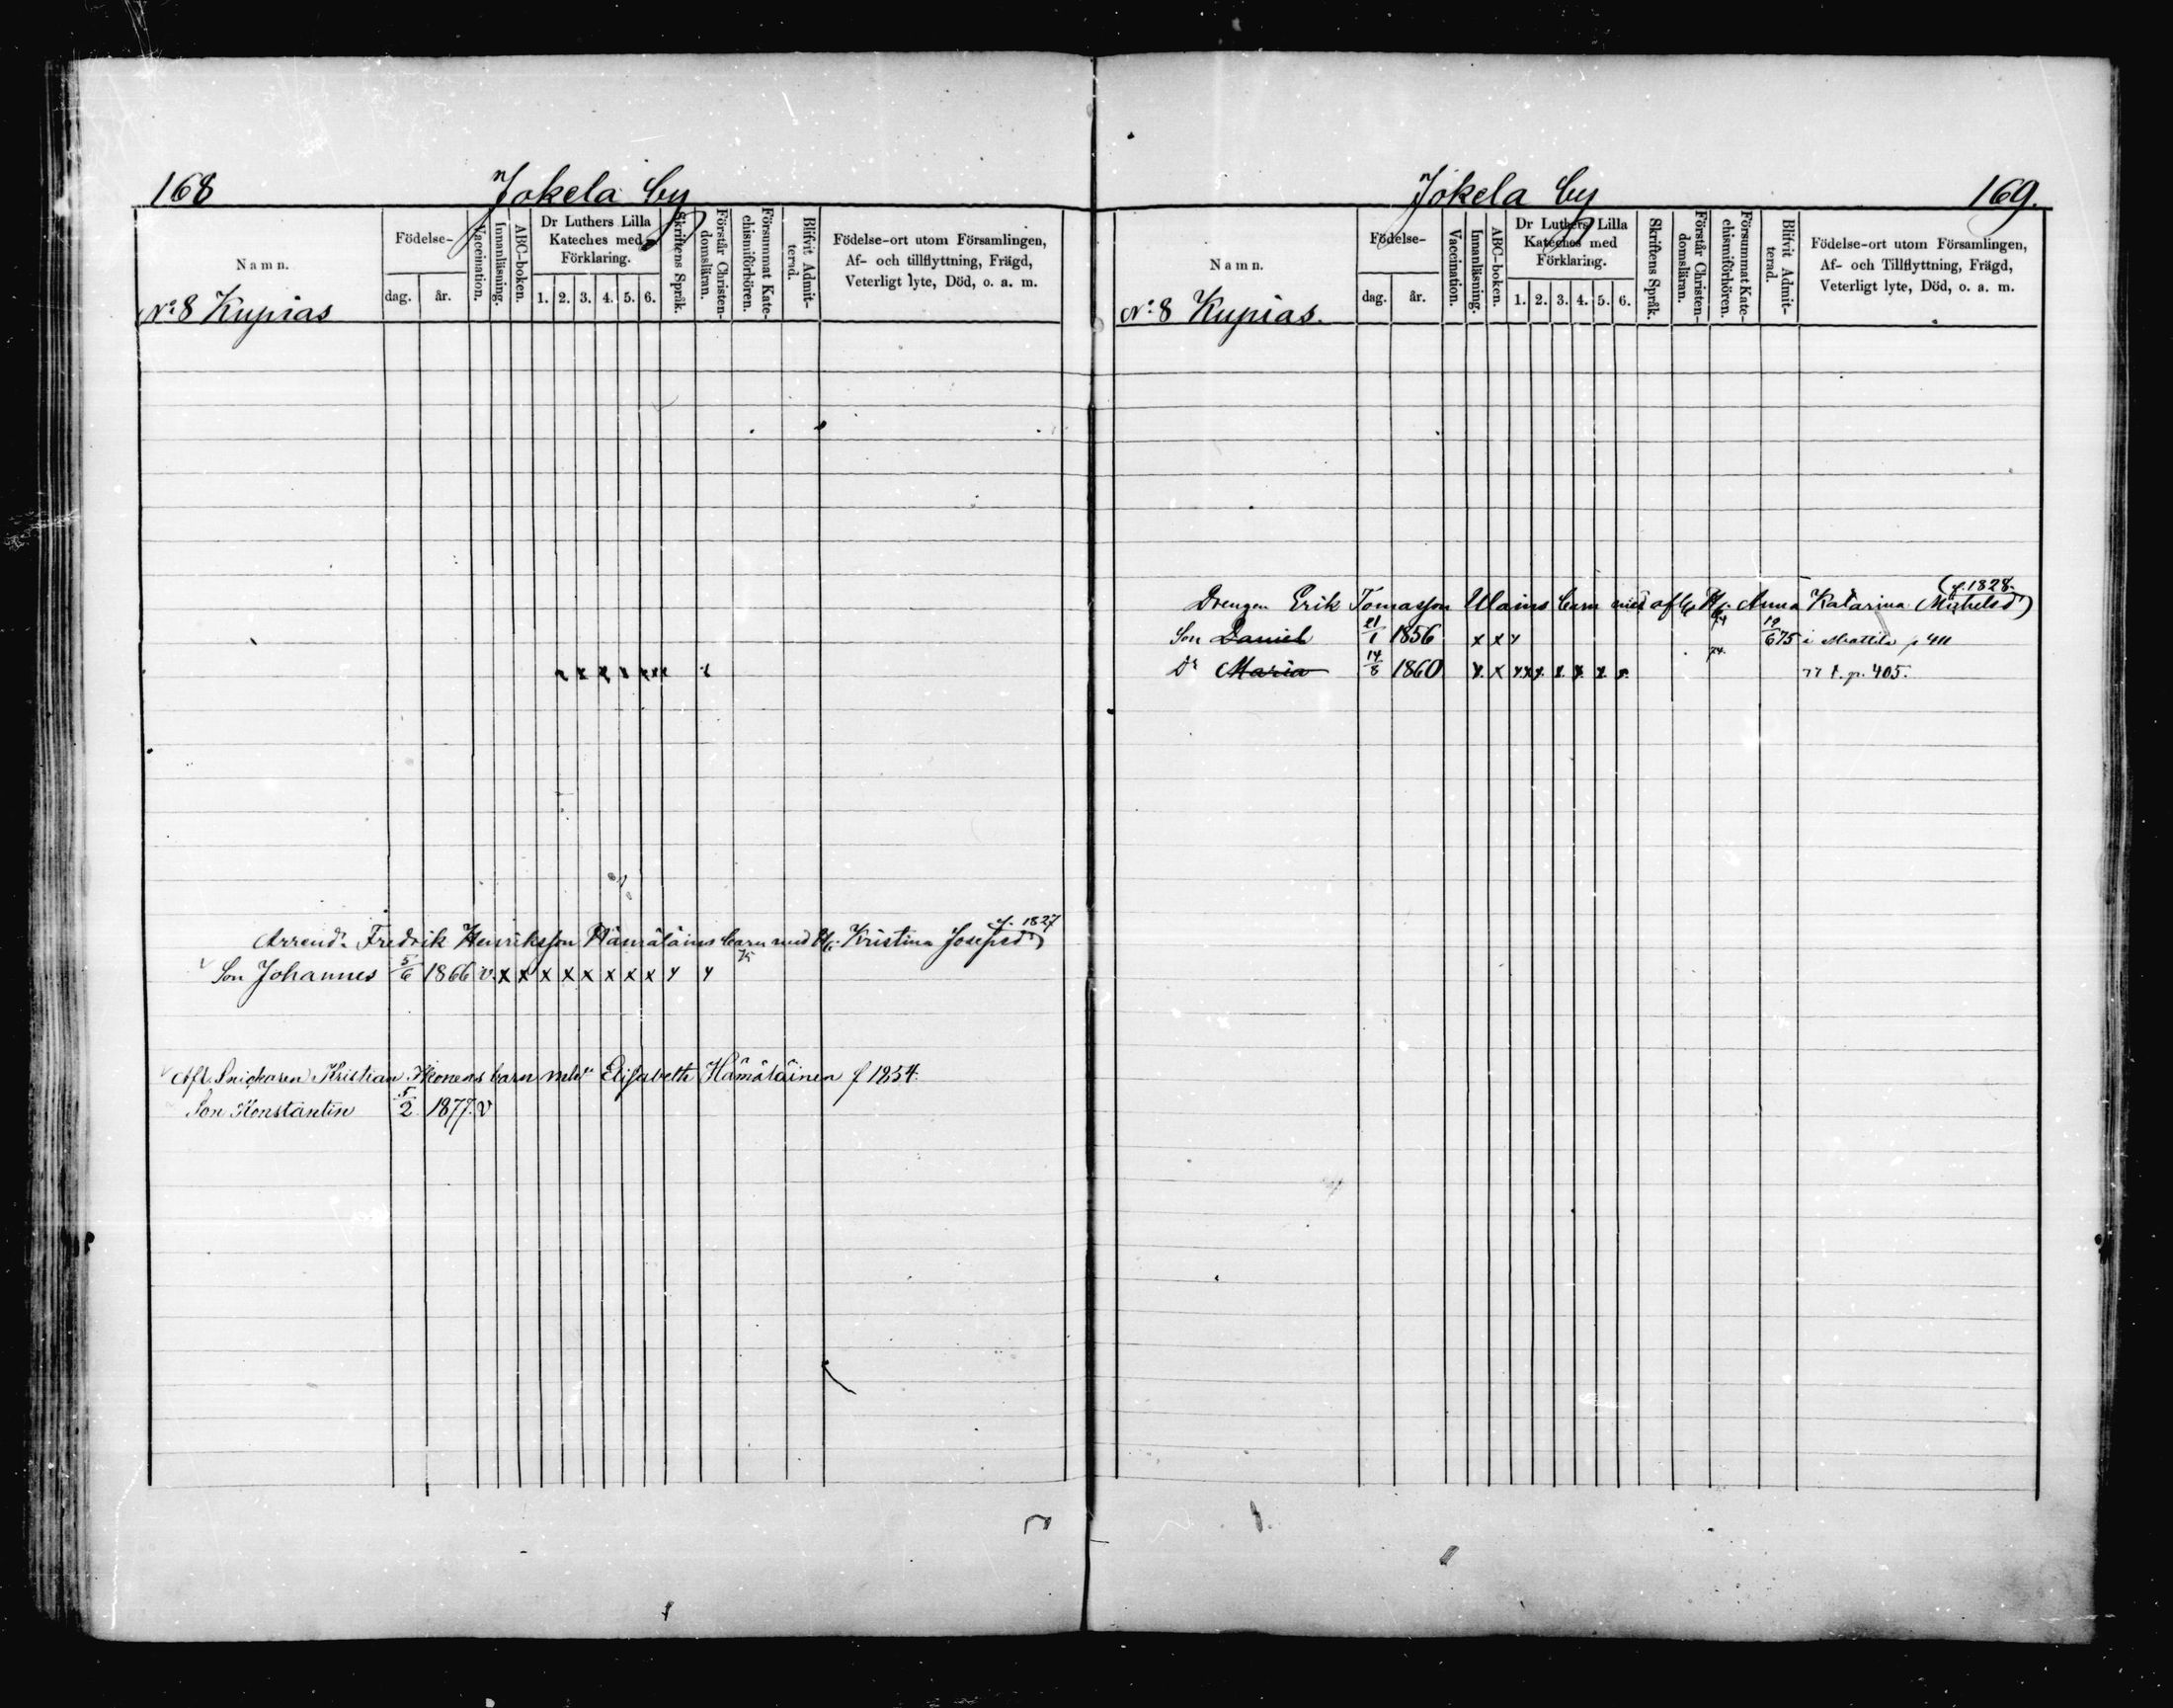 168 Jokela by
Namn. Födelse- dag. år. Vaccination. Innanläsning. ABC-boken. Dr Luthers Lilla Kateches med Förklaring. 1. 2. 3. 4. 5. 6. Skriftens Språk. Förstår Christendomsläran. Försummat Katechismiförhören. Blifvit Admitterad. Födelse-ort utom Församlingen, Af- och tillflyttning, Frägd, Veterligt lyte, Död, o. a. m.
No 8 Kupias
x x x x x x x x
f. 1827
Arrend. Fredrik Henriksson Hämäläins barn med H. Kristina Josefsd)
Son Johannes 5/6 1866 v. x x x x x x x x x x
Afl. Snickaren Kristian barn med Elisabeth Hämäläinen f 1854.
Son Konstantin 5/2 1877. v
Jokela by 169.
Namn. Födelse- dag. år. Vaccination. Innanläsning. ABC-boken. Dr Luthers Lilla Kateches med Förklaring. 1. 2. 3. 4. 5. 6. Skriftens Språk. Förstår Christendomsläran. Försummat Katechismiförhören. Blifvit Admitterad. Födelse-ort utom Församlingen, Af- och Tillflyttning, Frägd, Veterligt lyte, Död, o. a. m.
No 8 Kupias.
(f. 1828.
Drengen Erik Tomasson Ulains barn med afl. H. Anna Katarina Michelsd)
Son Daniel 21/1 1856 x x x 74 19/6 75 i Mattila p 411
Dr Maria 14/8 1860 x x x x x x x x x 74. 77 t. p. 405.